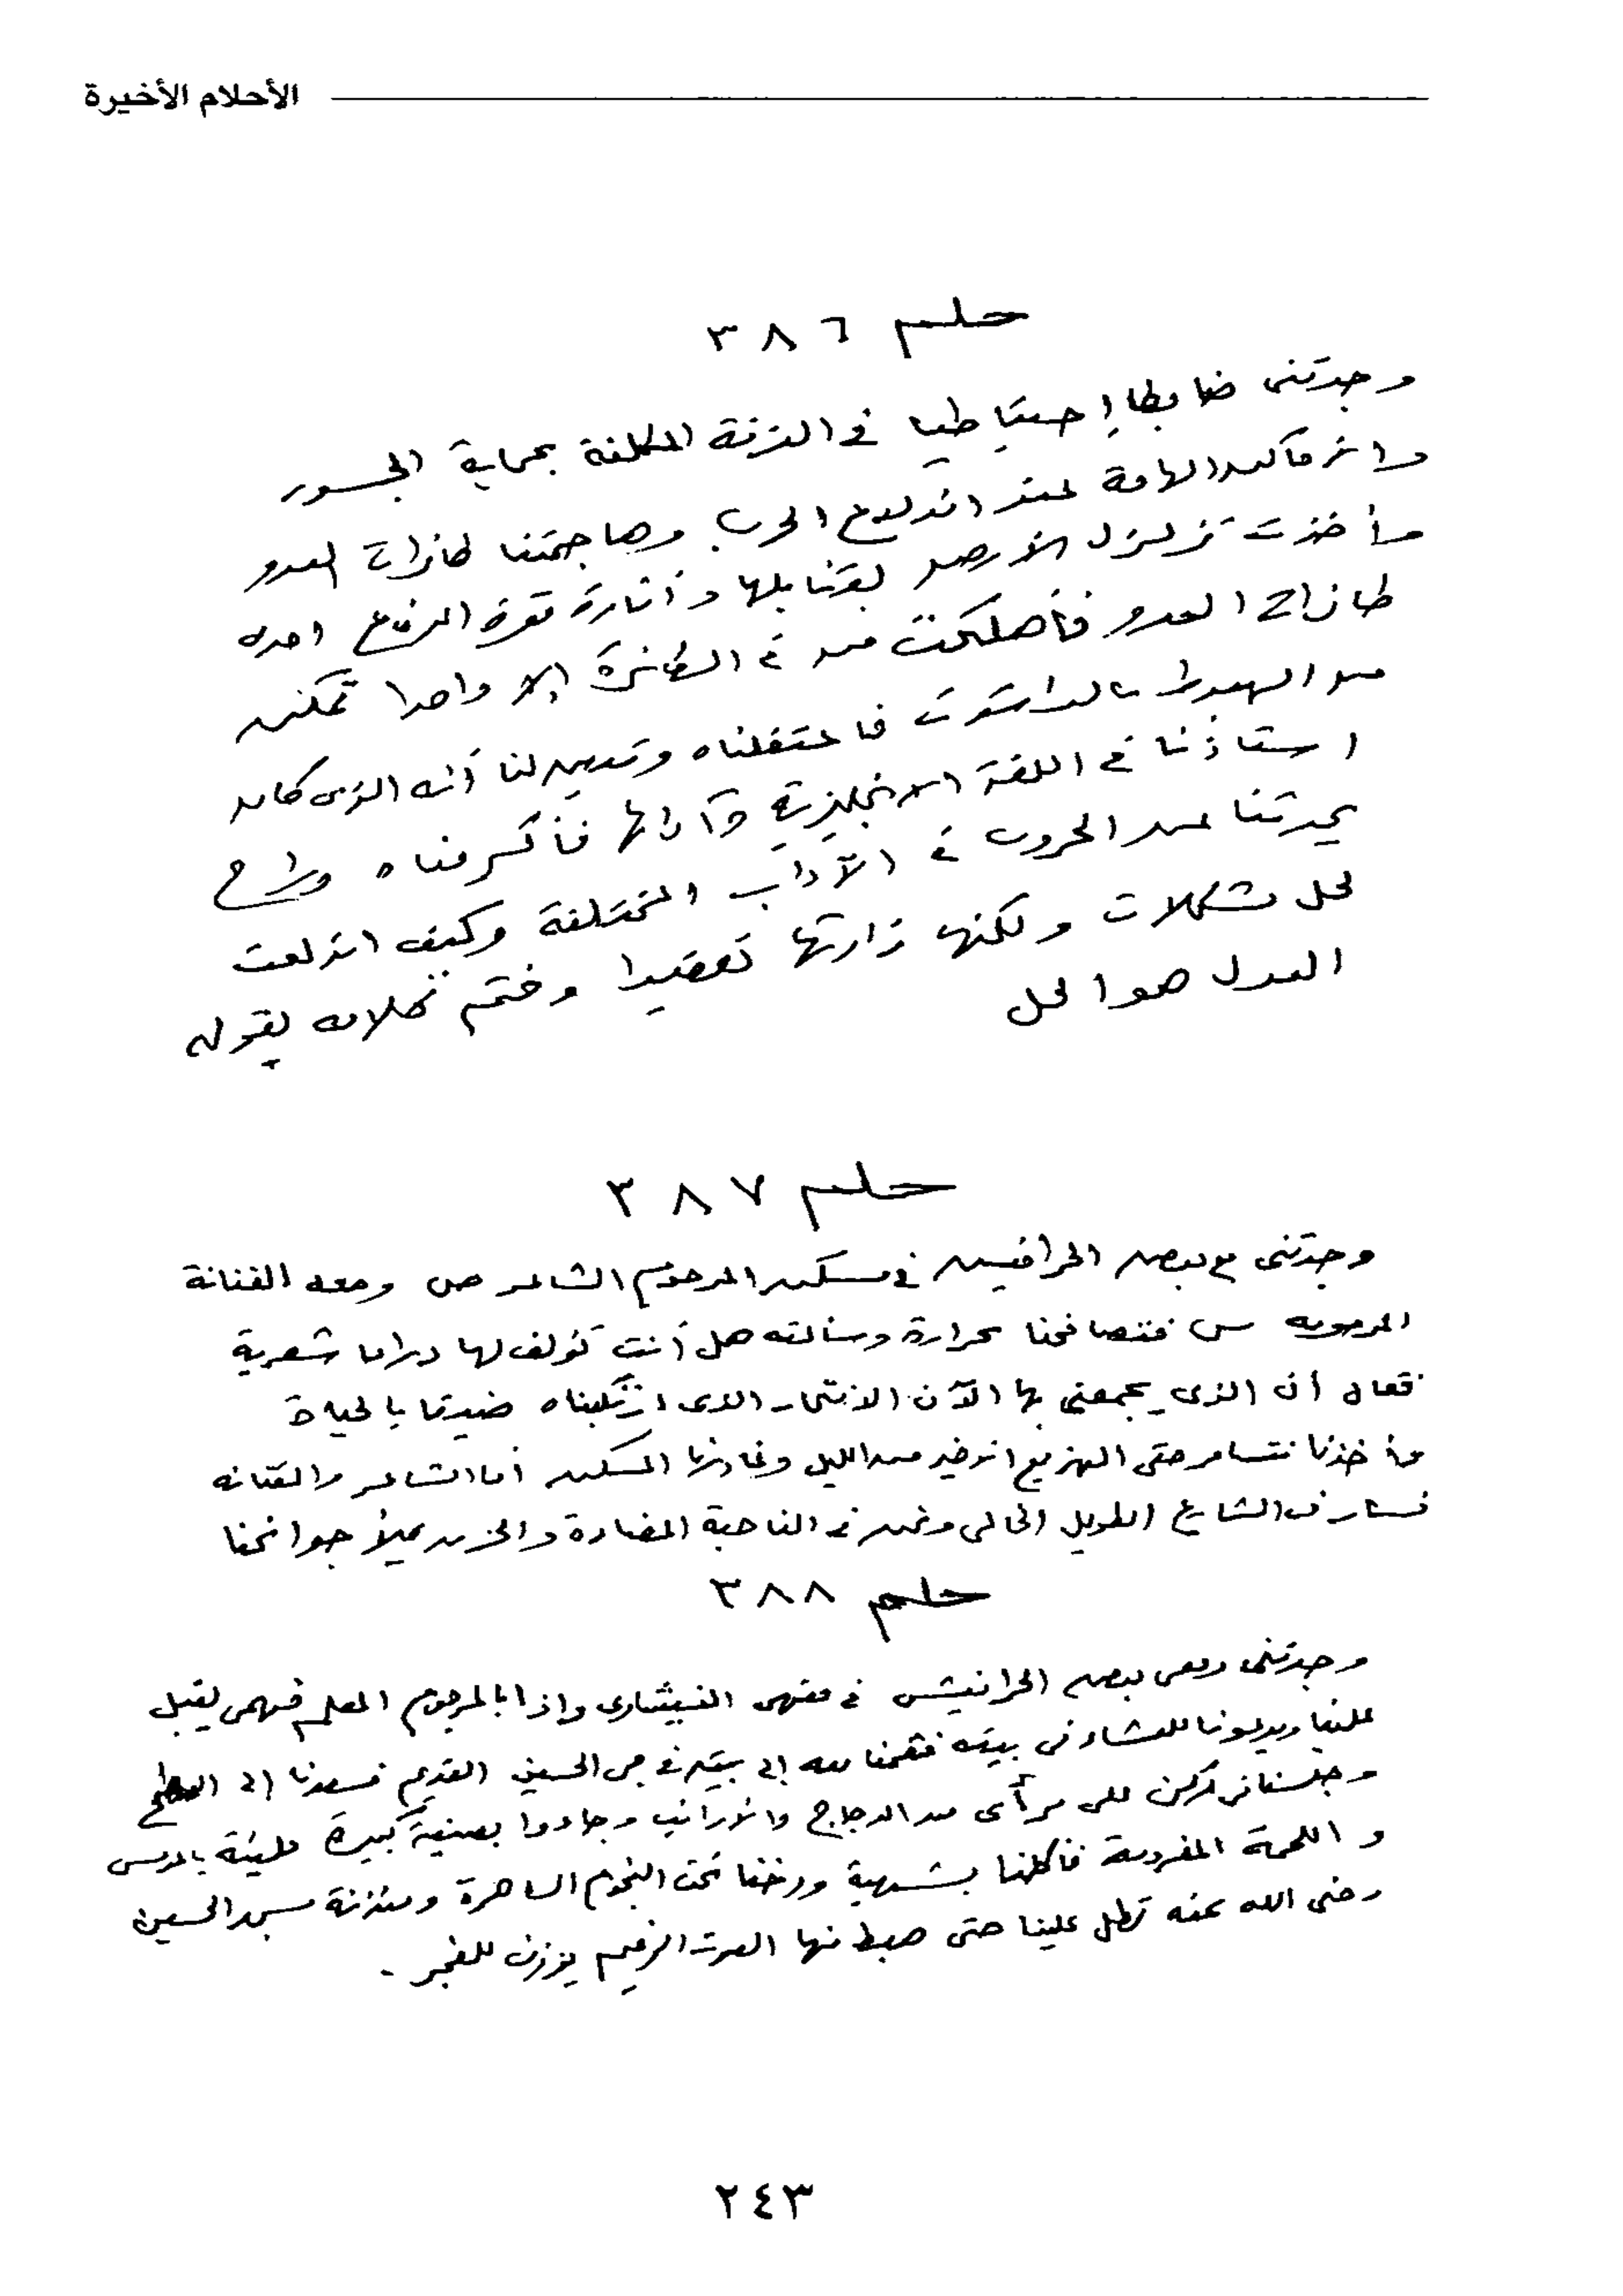 الأحلام الأخيرة
حلم ٣٨٦
وجدتنى ضابطا إحتياطيا فى الفرقة المكلفة بحماية الجسور
والأماكن الهامة عند اندلاع الحرب وهاجمتنا طائرات العدو
وأخذت تزلزل الأرض بقنابلها وأثارت قوة الدفاع احدى
طائرات العدو فأهلكت من فى الطائرة إلا واحدا تمكن
من الهبوط بالباراشوت فاعتقلناه وتبين لنا أنه الذى كان
استاذنا فى اللغة الانجليزية وآدابها فأكرمناه وراح
يحدثنا عن الحروب فى الآداب المختلفة وكيف اندلعت
لحل مشكلات ولكنها زادتها تعقيدا وختم كلامه بقوله
العدل هو الحل
حلم ٣٨٧
وجدتنى مع بعض الحرافيش فى مسكن المرحوم الشاعر ص ومعه الفنانة
المرحومة س فتصافحنا بحرارة وسألته هل أنت تؤلف لها دراما شعرية
فقال ان الذى يجمعنى بها الآن الانتحار الذى ارتكبناه ضيقا بالحياة
وأخذنا نتسامر حتى الهزيع الأخير من الليل وغادرنا المسكن أما الشاعر والفنانه
فسارا فى الشارع الطويل الخالى ونحن فى الناحية المضادة والحزن يملأ جوانحنا
حلم ٣٨٨
وجدتنى ومعى بعض الحرافيش فى مقهى الفيشاوى واذا بالمرحوم المعلم فهمى يقبل
علينا ويدعونا للعشاء فى بيته فقمنا معه إلى بيته فى حى الحسين القديم فصعدنا إلى السطح
وجلسنا فى ركن على مرأى من الدجاج والأرانب وجاءوا بصنية كبيرة مليئة بالمرسى
و اللحمة المفرومة فأكلنا بشهية ودخنا تحت النجوم الساهرة ومئذنة سيدنا الحسين
رضى الله عنه تطل علينا حتى هبط منها الصوت الرخيم يؤذن للفجر .
٢٤٣